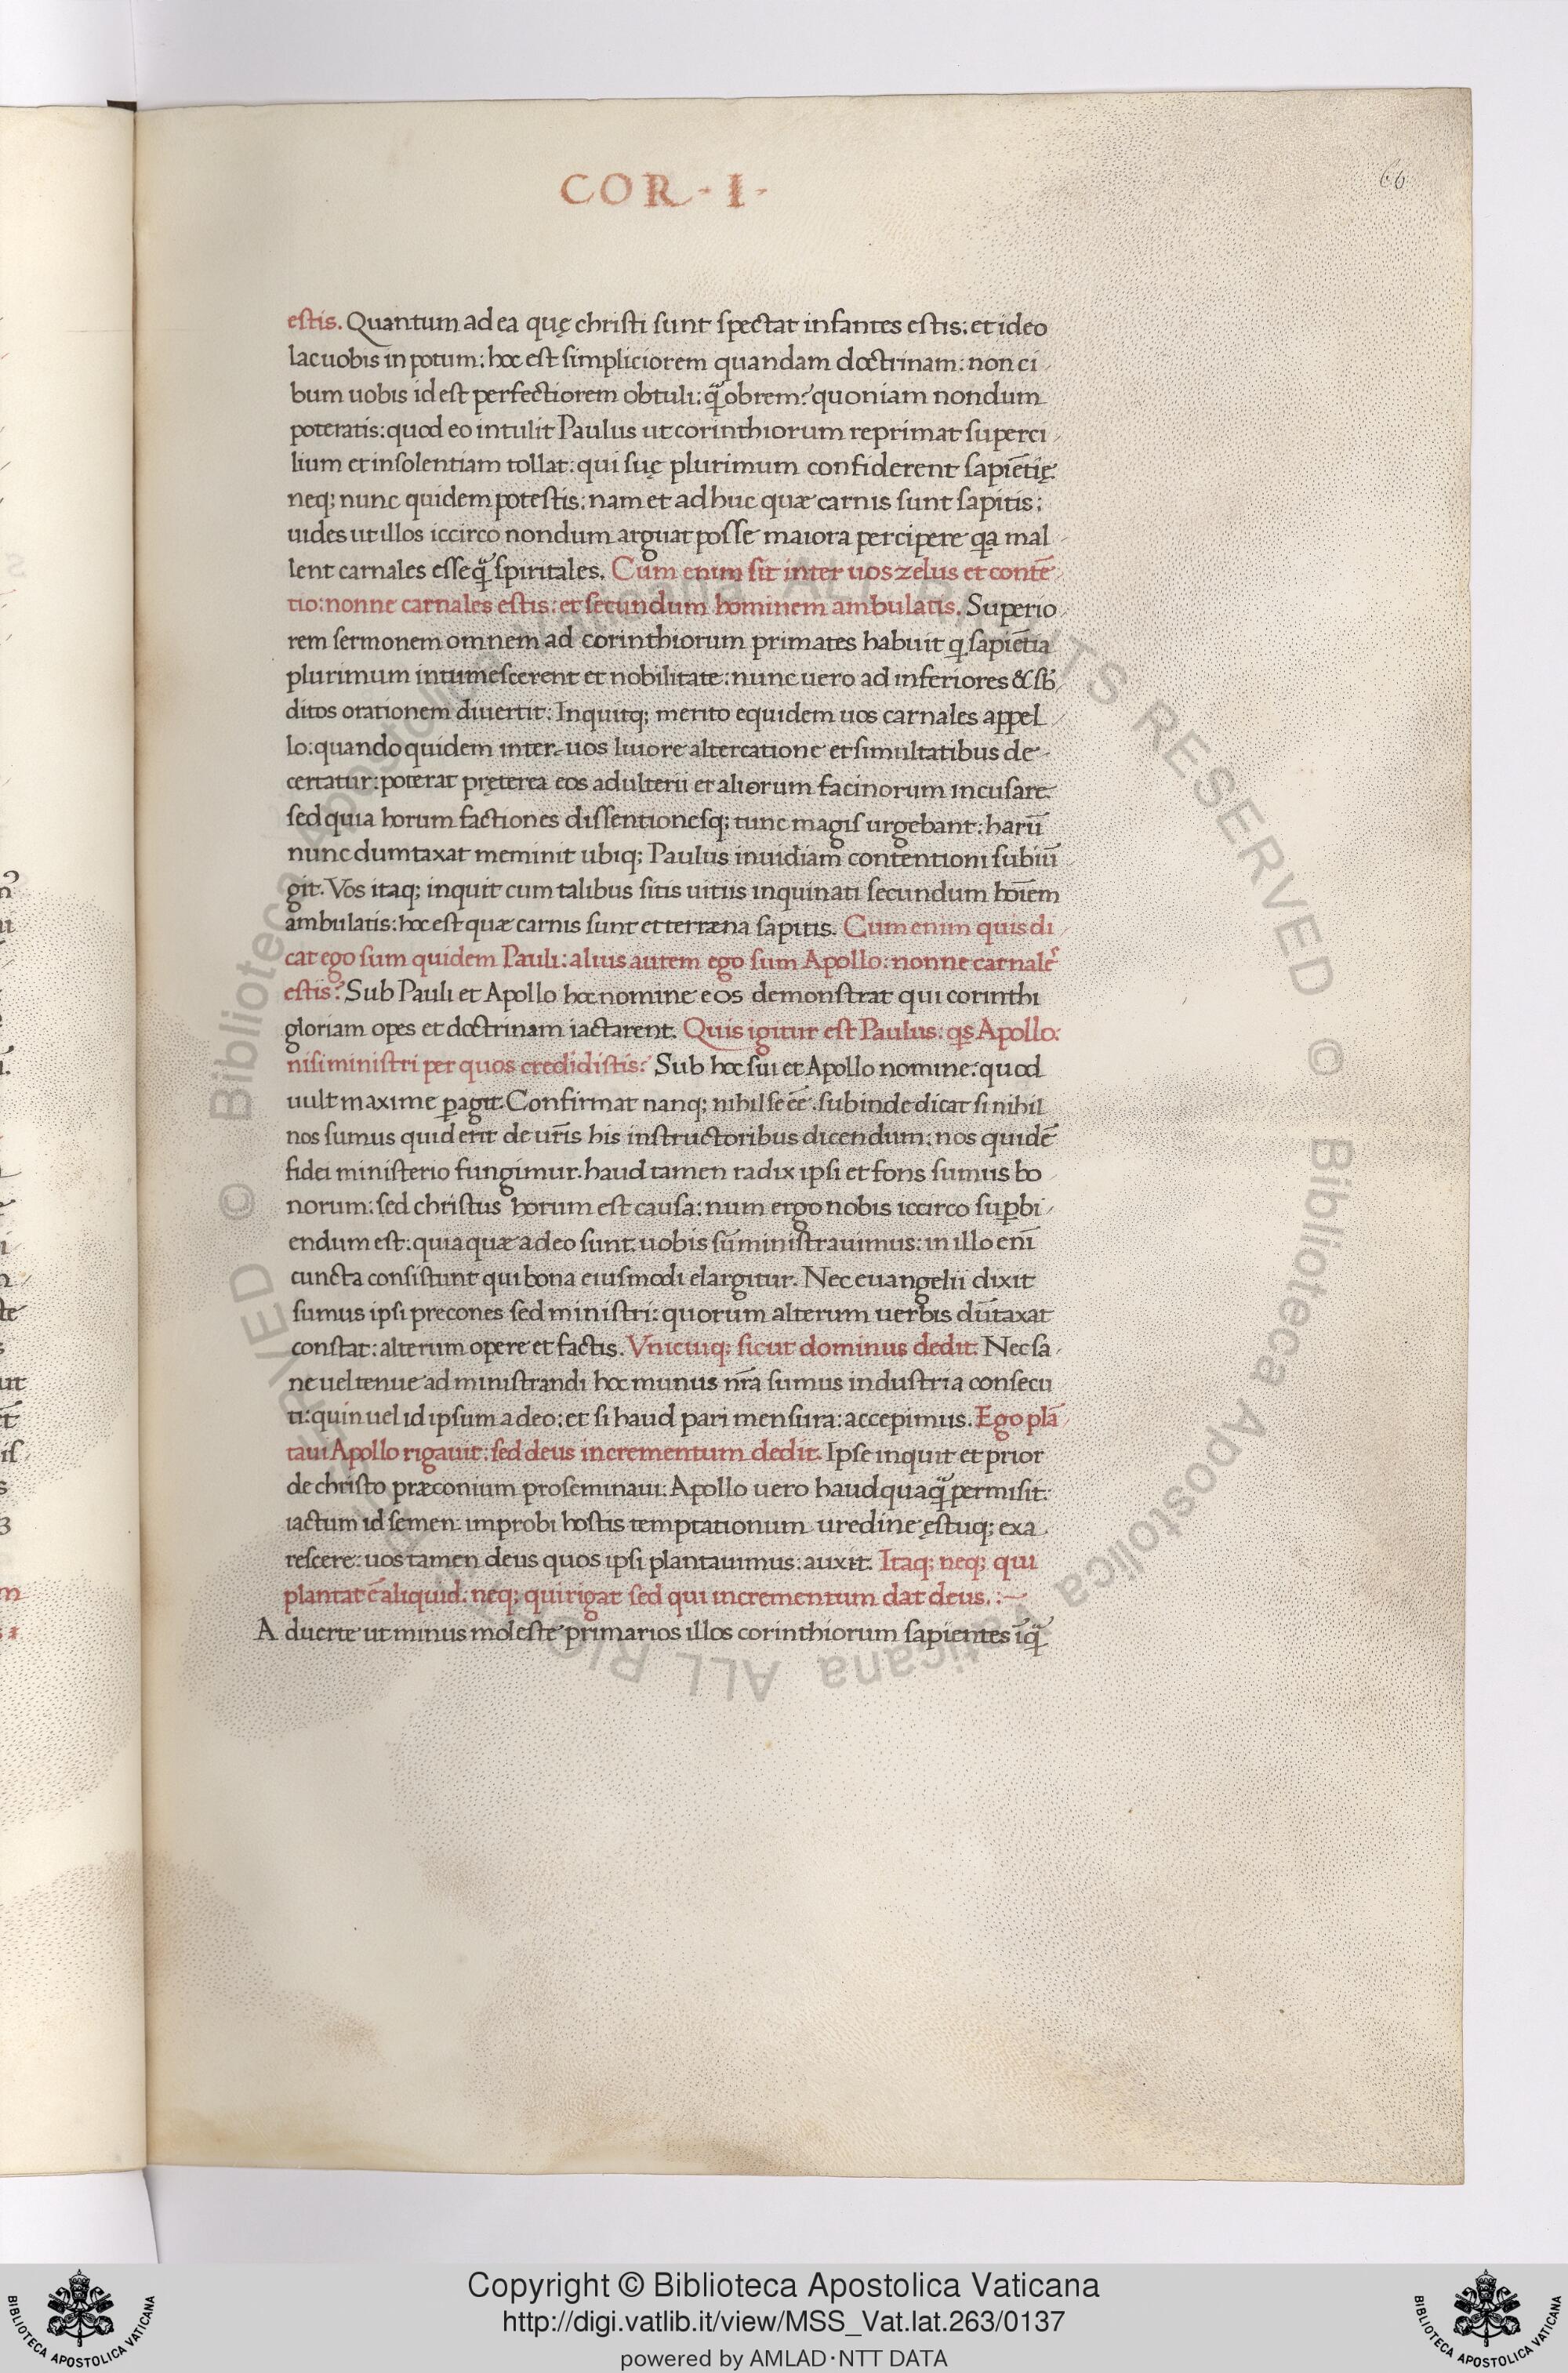 COR · I ·
66
estis. Quantum ad ea quę christi sunt spectat infantes estis: et ideo
lac uobis in potum: hoc est simpliciorem quandam doctrinam: non ci
bum uobis id est perfectiorem obtuli: q̃ obrem? quoniam nondum
poteratis: quod eo intulit Paulus ut corinthiorum reprimat superci
lium et insolentiam tollat: qui suę plurimum confiderent sapiētię.
neq; nunc quidem potestis: nam et adhuc quæ carnis sunt sapitis:
uides ut illos iccirco nondum arguat posse maiora percipere qa mal
lent carnales esse q̃ spiritales. Cum enim sit inter uos zelus et contē
tio: nonne carnales estis: et secundum hominem ambulatis. Superio
rem sermonem omnem ad corinthiorum primates habuit q sapiētia
plurimum intumescerent et nobilitate: nunc uero ad inferiores & sb̄
ditos orationem diuertit: Inquitq; merito equidem uos carnales appel
lo: quando quidem inter uos liuore altercatione et simultatibus de
certatur: poterat pręterea eos adulterii et aliorum facinorum incusare.
sed quia horum factiones dissentionesq; tunc magis urgebant: harū
nunc dumtaxat meminit ubiq; Paulus inuidiam contentioni subiū
git. Vos itaq; inquit cum talibus sitis uitiis inquinati secundum hoīem
ambulatis: hoc est quæ carnis sunt et terræna sapitis. Cum enim quis di
cat ego sum quidem Pauli: alius autem ego sum Apollo: nonne carnales
estis? Sub Pauli et Apollo hoc nomine eos demonstrat qui corinthi
gloriam opes et doctrinam iactarent. Quis igitur est Paulus: qs Apollo:
nisi ministri per quos credidistis? Sub hoc sui et Apollo nomine: quod
uult maxime ꝑagit. Confirmat nanq; nihil se eē. subinde dicat si nihil
nos sumus quid erit de ur̄is his instructoribus dicendum: nos quidē
fidei ministerio fungimur. haud tamen radix ipsi et fons sumus bo
norum: sed christus horum est causa: num ergo nobis iccirco suꝑbi
endum est: quia quæ a deo sunt uobis sūministrauimus: in illo enī
cuncta consistunt qui bona eiusmodi elargitur. Nec euangelii dixit
sumus ipsi precones sed ministri: quorum alterum uerbis dūtaxat
constat: alterum opere et factis. Vnicuiq; sicut dominus dedit. Nec sa
ne uel tenue ad ministrandi hoc munus nr̄a sumus industria consecu
ti: quin uel id ipsum a deo: et si haud pari mensura: accepimus. Ego plā
taui Apollo rigauit: sed deus incrementum dedit. Ipse inquit et prior
de christo præconium proseminaui: Apollo uero haud quaq̃ permisit:
iactum id semen improbi hostis temptationum uredine ęstuq; exa
rescere: uos tamen deus quos ipsi plantauimus: auxit. Itaq; neq; qui
plantat ē aliquid: neq; qui rigat sed qui incrementum dat deus. :~
A duerte ut minus moleste primarios illos corinthiorum sapientes īq̃
Copyright © Biblioteca Apostolica Vaticana
http://digi.vatlib.it/view/MSS_Vat.lat.263/0137
powered by AMLAD·NTT DATA